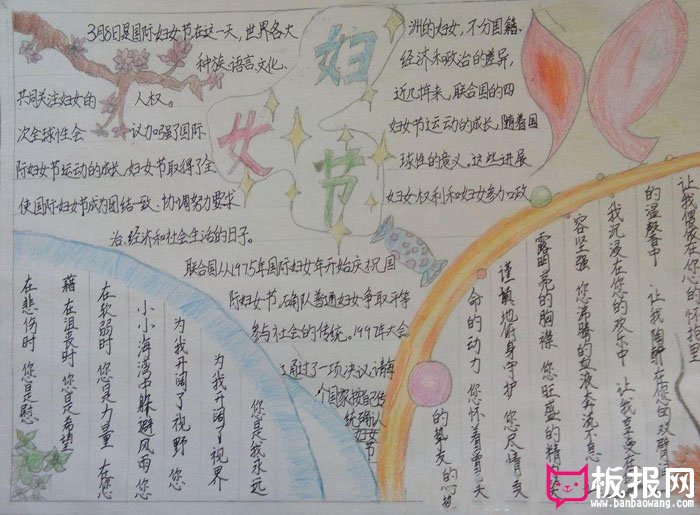 妇
女
节
3月8日是国际妇女节在这一天,世界各大
洲的妇女,不分国籍、
种族、语言、文化、
经济和政治的差异,
共同关注妇女的 人权。
近几十年来,联合国的四
次全球性会 议加强了国际
妇女节运动的成长,随着国
际妇女节运动的成长,妇女节取得了全
球性的意义。这些进展
使国际妇女节成为团结一致、协调努力要求
妇女权利和妇女参加政
治、经济和社会生活的日子。
联合国从1975年国际妇女年开始庆祝国
际妇女节,
普通妇女争取平等
参与社会的传统。1997年大会
通过了一项决议,请每
个国家按自己传
统确认
妇女节
在悲伤时 您是慰
藉 在沮丧时 您是希望
在软弱时 您是力量 在您
小小海湾中躲避风雨 您
为我开阔了视野 您
为我开阔了视界
您是我永远
的挚友
命的动力 您怀着
谨慎地俯身守护 您尽情
露明亮的胸襟 您旺盛的精
容坚强 您沸腾的血液奔流不息
我沉浸在您的欢乐中 让我享受在
的温馨中 让我陶醉在您的双臂
让我偎依在您的怀抱里
板报网
www.banbaowang.com